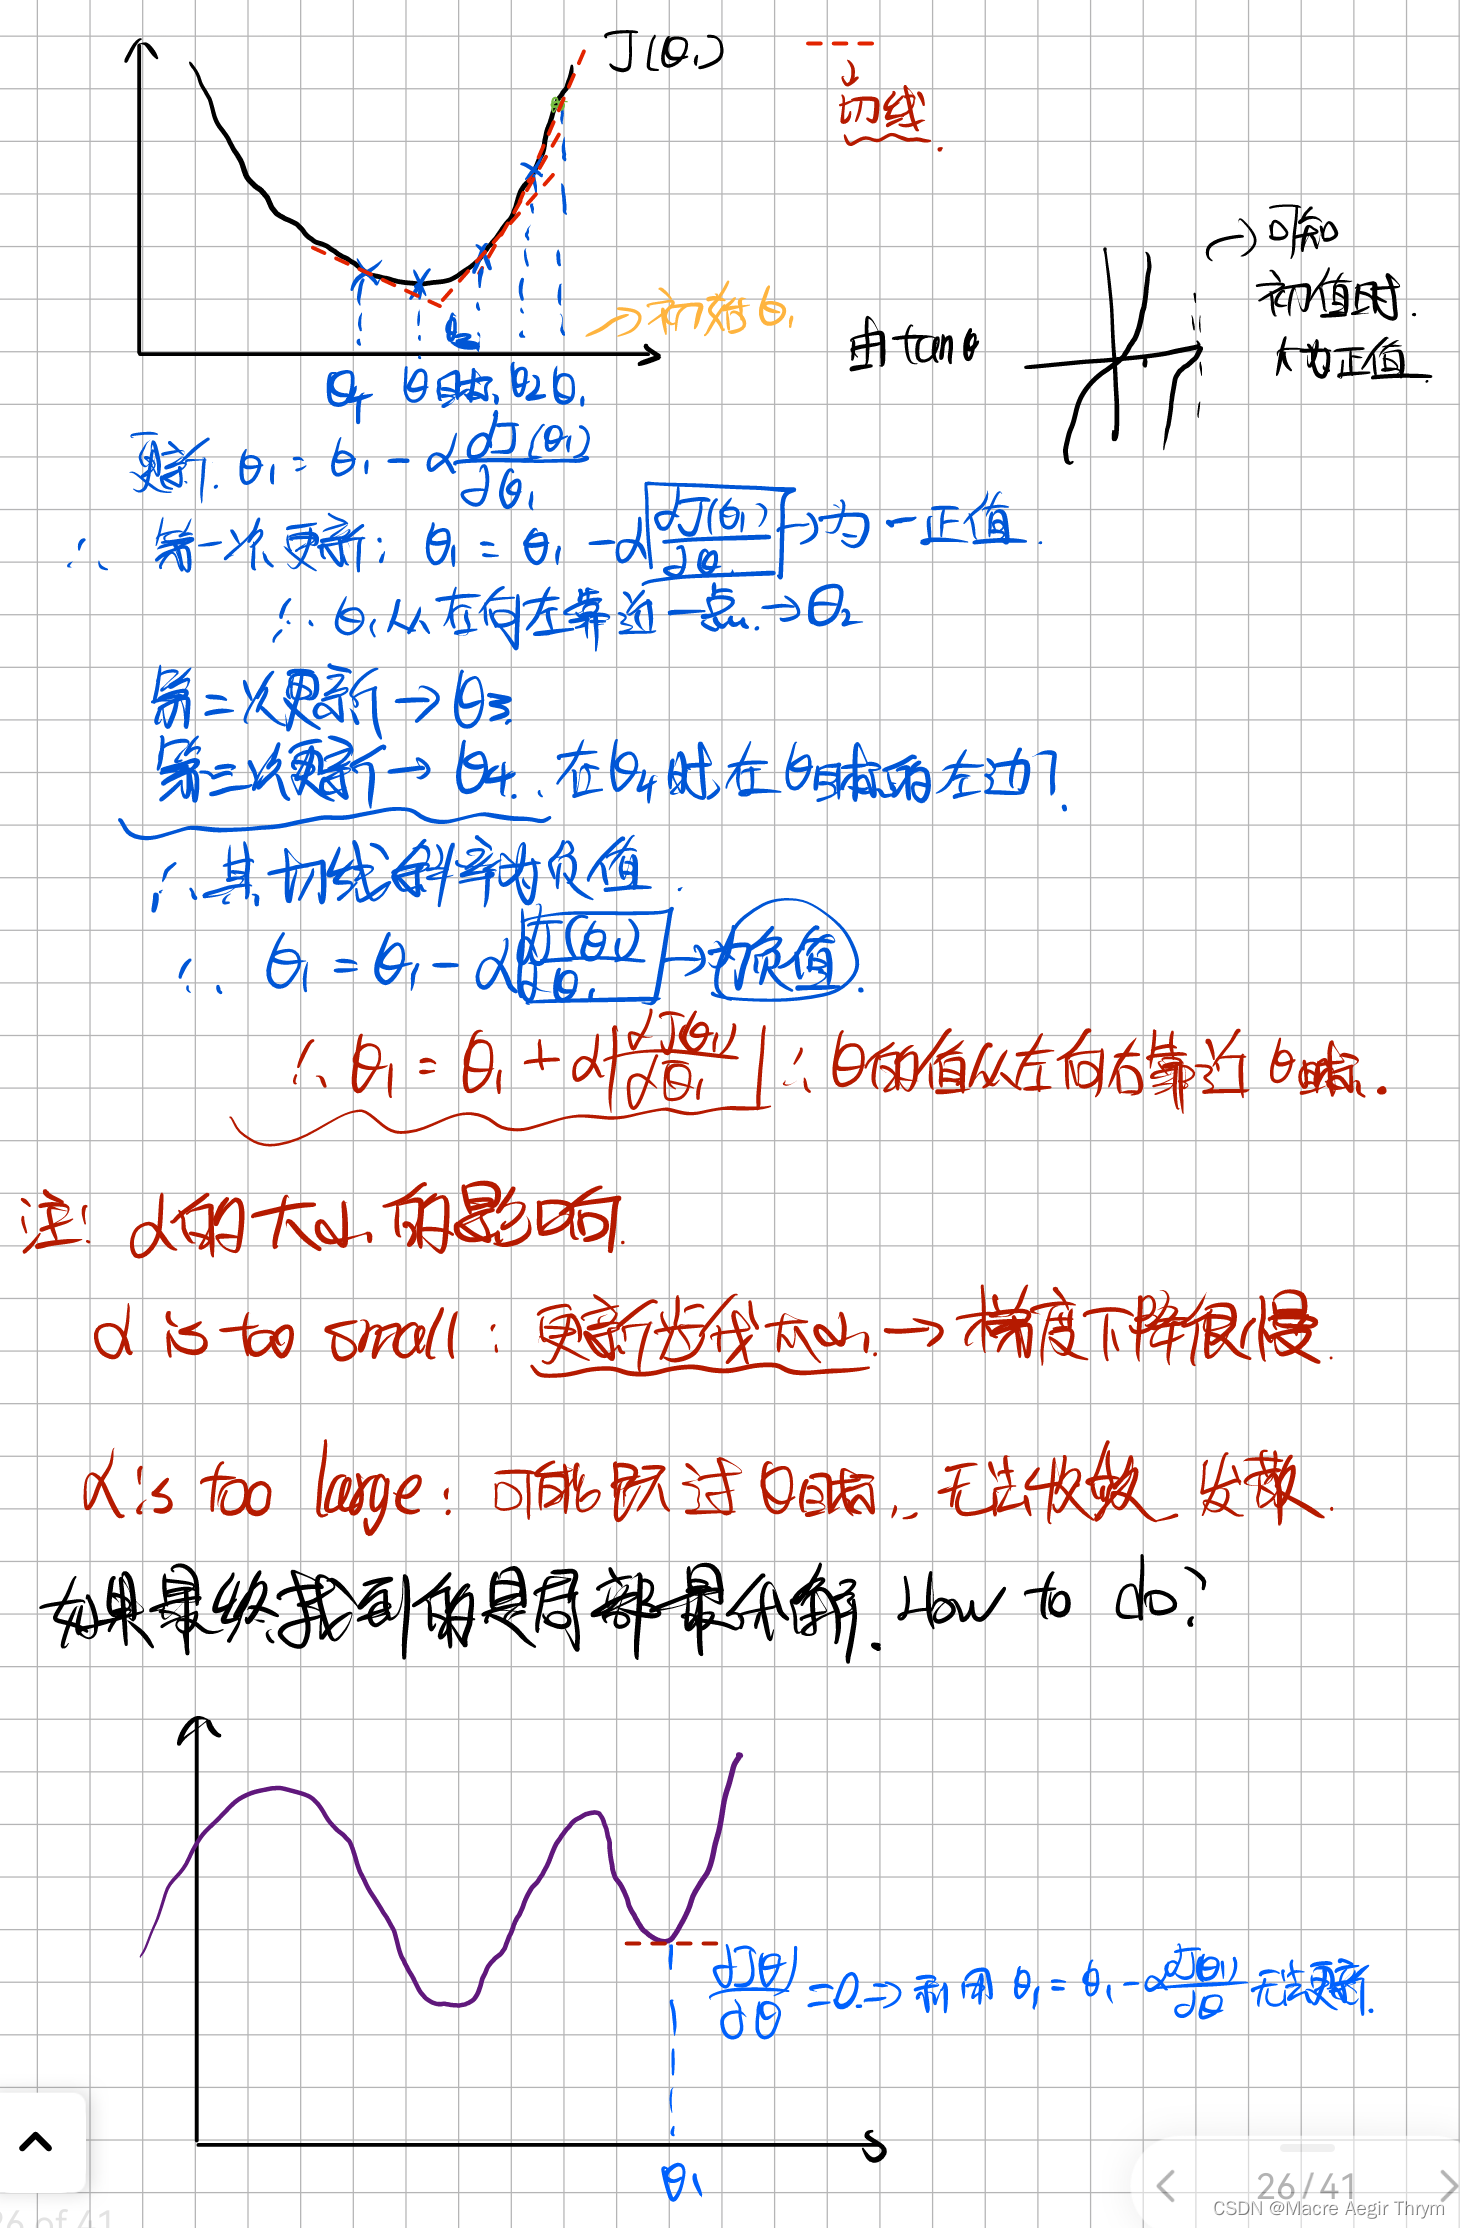 J(θ₁)
切线.
→初始θ₁
由tanθ
→可知
初值时.
k为正值.
θ₃
θ₄ θ目标. θ₂ θ₁
更新. θ₁ = θ₁ - α dJ(θ₁)/∂θ₁
∴ 第一次更新: θ₁ = θ₁ - α dJ(θ₁)/∂θ₁ → 为一正值.
∴ θ₁从右向左靠近一点. → θ₂
第二次更新 → θ₃.
第三次更新 → θ₄. ∵ 在θ₄时在θ目标的左边?
∴ 其切线斜率为负值.
∴ θ₁ = θ₁ - α dJ(θ₁)/dθ₁ → 为负值.
∴ θ₁ = θ₁ + α|dJ(θ₁)/dθ₁| ∴ θ的值从左向右靠近 θ目标.
注: α的大小的影响.
α is too small: 更新步伐太小. → 梯度下降很慢.
α is too large: 可能跃过θ目标, 无法收敛、发散.
如果最终找到的是局部最优解. How to do?
dJ(θ)/dθ = 0. => 利用 θ₁ = θ₁ - α dJ(θ₁)/dθ 无法更新.
θ₁
26/41
26 of 41
CSDN @Macre Aegir Thrym